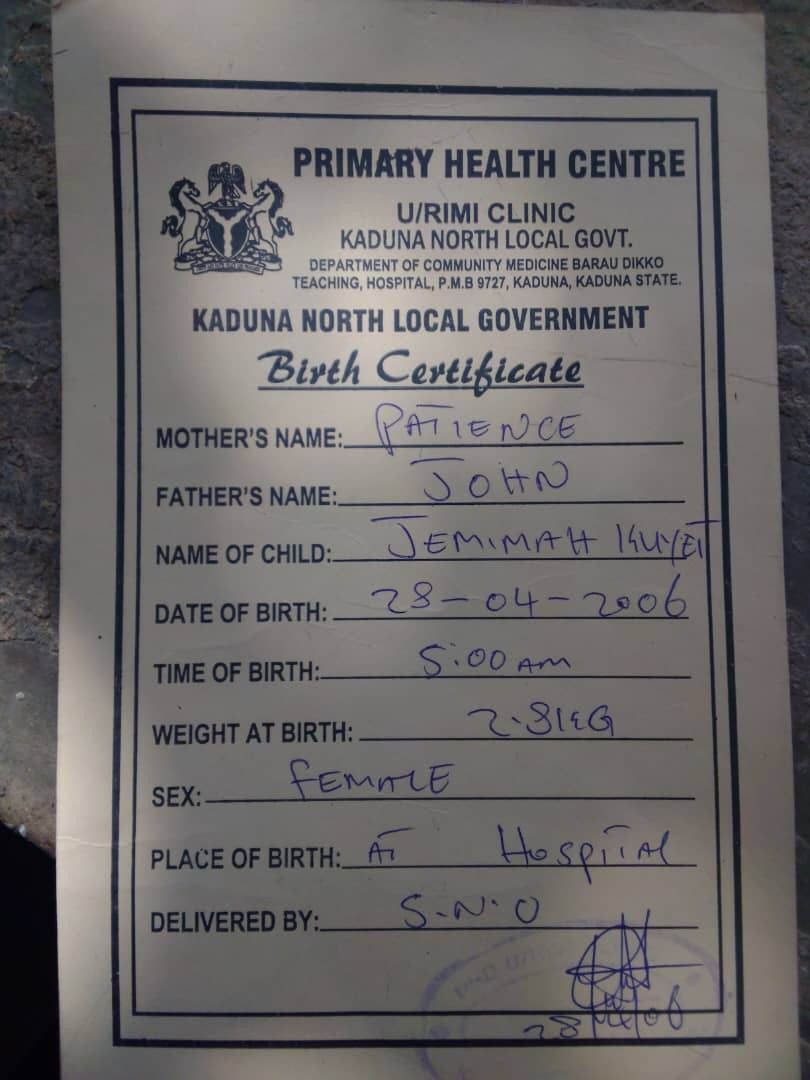 PRIMARY HEALTH CENTRE
U/RIMI CLINIC
KADUNA NORTH LOCAL GOVT.
DEPARTMENT OF COMMUNITY MEDICINE BARAU DIKKO
TEACHING, HOSPITAL, P.M.B 9727, KADUNA, KADUNA STATE.
KADUNA NORTH LOCAL GOVERNMENT
Birth Certificate
MOTHER'S NAME: PATIENCE
FATHER'S NAME: JOHN
NAME OF CHILD: JEMIMAH KUYET
DATE OF BIRTH: 28-04-2006
TIME OF BIRTH: 5:00 AM
WEIGHT AT BIRTH: 2.8KG
SEX: FEMALE
PLACE OF BIRTH: AT HOSPITAL
DELIVERED BY: S.N.O
28/4/06